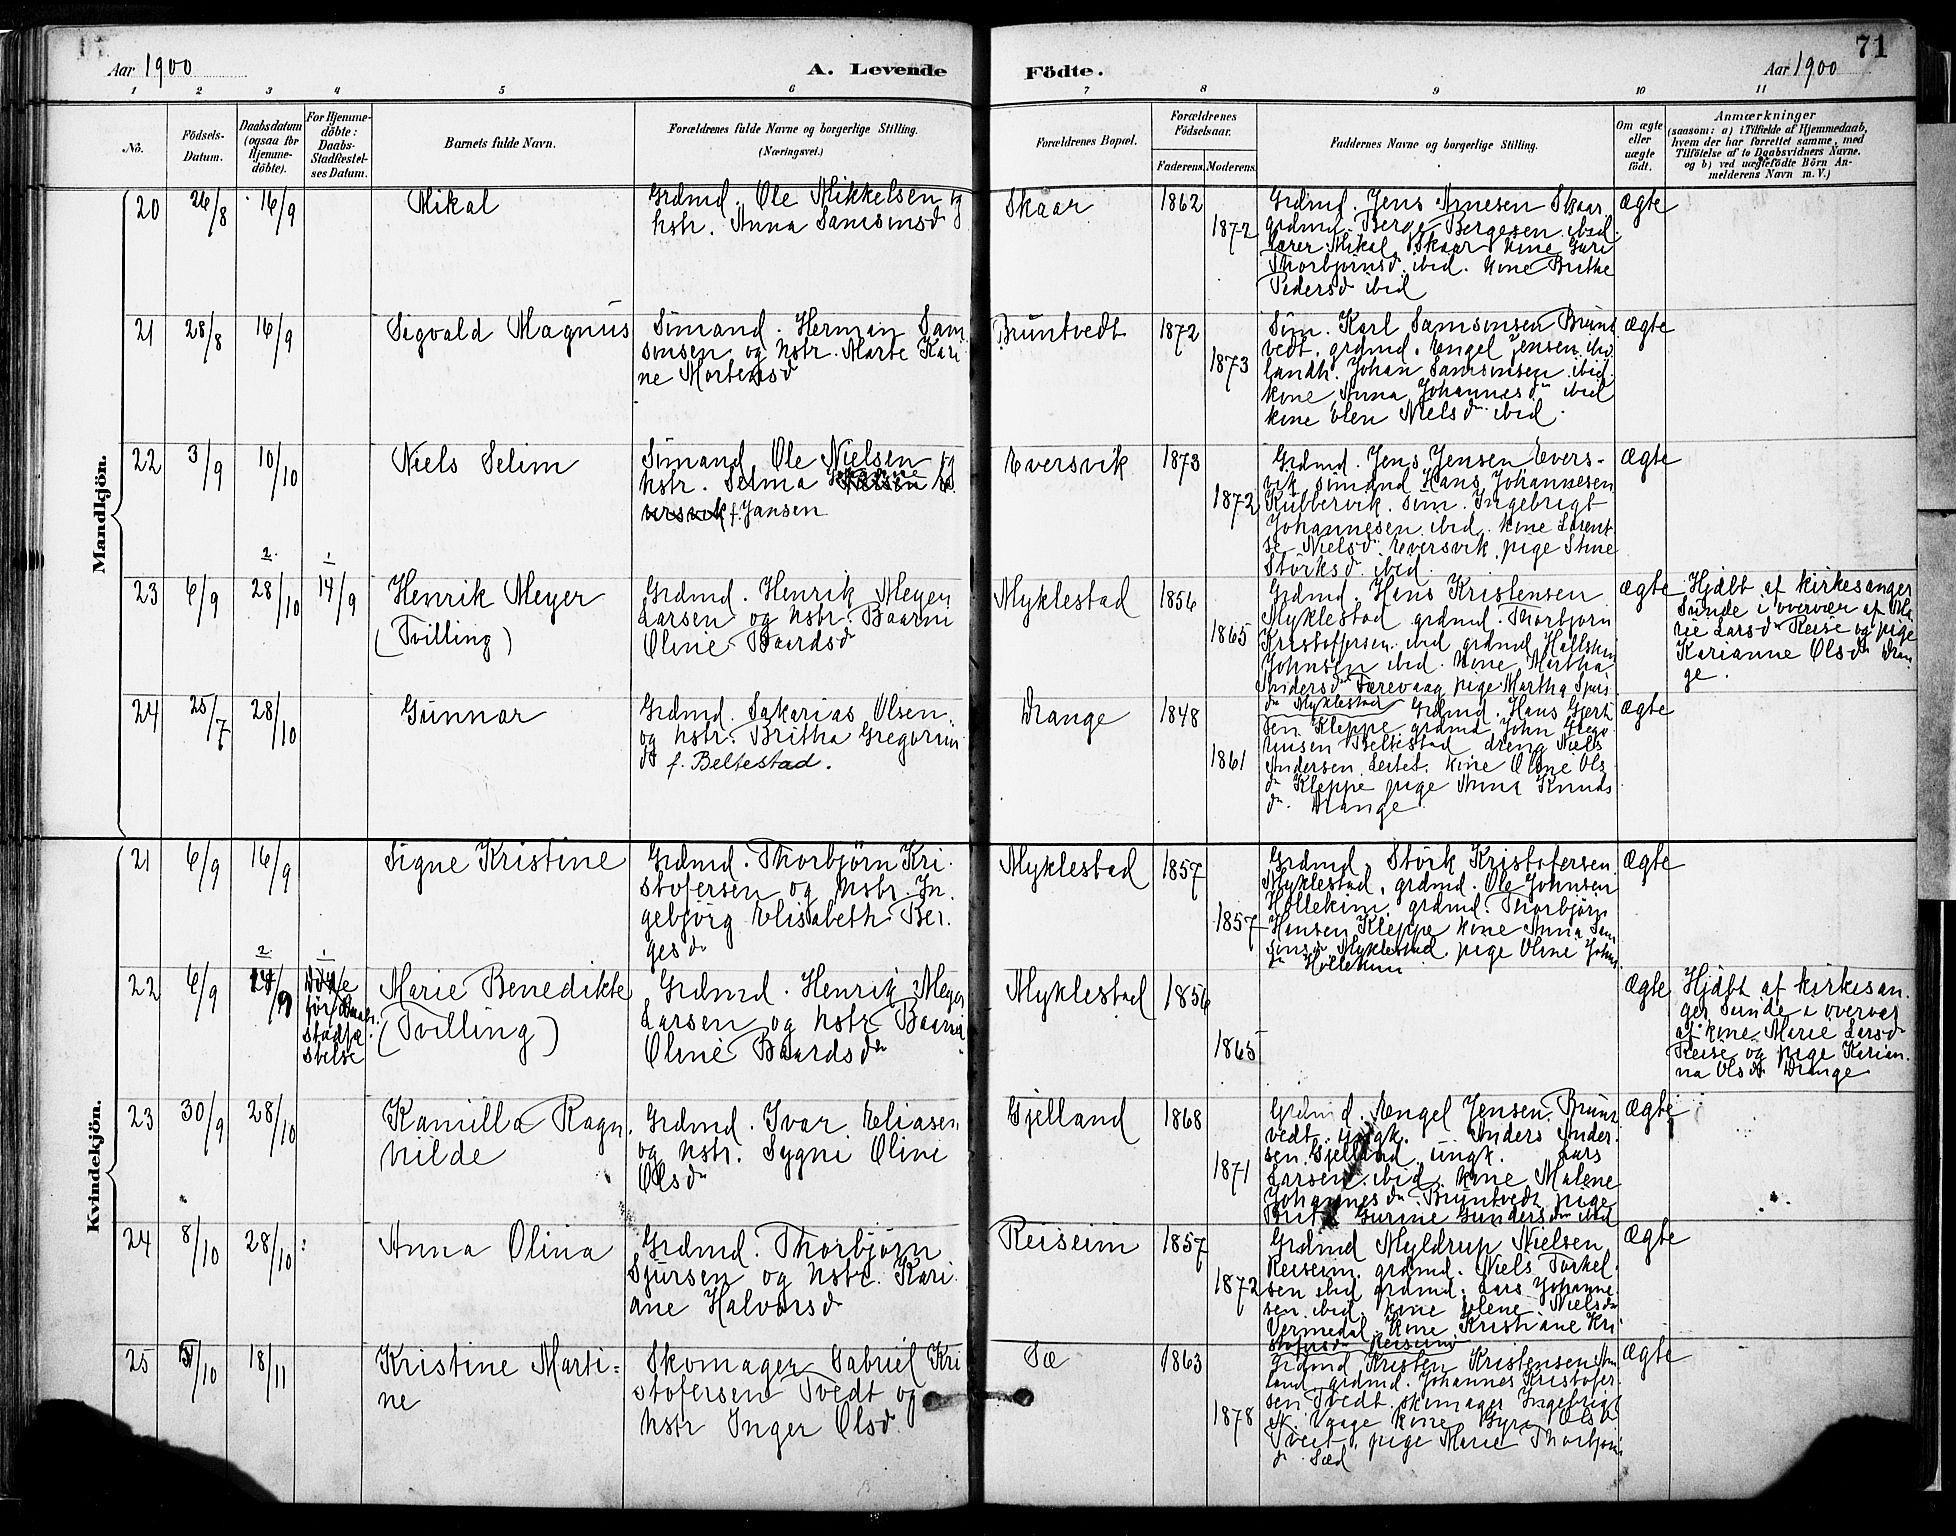 Aar 1900
A. Levende
Födte.
71
Aar 1900
1 2 3 4 5 6 7 8 9 10 11
No.
Födsels-
Datum.
Daabsdatum
(ogsaa for
Hjemme-
döbte).
For Hjemme-
döbte:
Daabs-
Stadfæstel-
ses Datum.
Barnets fulde Navn.
Forældrenes fulde Navne og borgerlige Stilling.
(Næringsvei.)
Forældrenes Bopæl.
Forældrenes
Födselsaar.
Faderens. Moderens.
Faddernes Navne og borgerlige Stilling.
Om ægte
eller
uægte
født.
Anmærkninger
(saasom: a) i Tilfælde af Hjemmedaab,
hvem der har forrettet samme, med
Tilföielse af to Daabsvidners Navne.
og b) ved uægtefödte Börn An-
melderens Navn m. V.)
Mandkjön.
20 26/8 16/9
Mikal
Grdmd. Ole Mikkelsen og
hstr. Anna Samsonsd
Skaar
1862
1872
Grdmd. Jens Arnesen Skaar
grdmd. Berge Bergesen ibid.
Lærer Mikal Skaar kone Guri
Thorbjørnsd. ibid. kone Brithe
Pedersd ibid
ægte
21 28/8 16/9
Sigvald Magnus
Sömand. Herman Sam
sonsen og hstr. Marte Kari
ne Mortensd
Bruntvedt
1872
1873
Söm. Karl Samsonsen Brunt
vedt. grdmd. Engel Jensen ibid
landh. Johan Samsonsen ibid.
kone Anna Johannesdn ibid
kone Olen Nielsdn ibid.
ægte
22 3/9 10/10
Niels Selim
Sömand Ole Nielsen og
hstr. Selma
f. Jansen
Eversvik
1873
1872
Grdmd. Jens Jensen Evers-
vik sömand Hans Johannesen
Kubbervik. söm. Ingebrigt
Johannesen ibid. kone Lorent
se Nielsd Eversvik, pige Stine
Störksd. ibid.
ægte
23 6/9 2. 28/10 1 14/9
Henrik Meyer
(Tvilling)
Grdmd. Henrik Meyer
Larsen og hstr. Baarni
Oline Baardsd
Myklestad
1856
1865
Grdmd. Hans Kristensen
Myklestad grdmd. Thorbjørn
Kristoffersen ibid grdmd Hallstein
Johnsen ibid. kone Martha
Andersdn Færevaag pige Martha Sjurs
dn Myklestad
ægte
Hjdbt af kirkesanger
Sunde i overvær af Ma
rie Larsdn Reise og pige
Karianne Olsdn Dran
ge.
24 25/7 28/10
Gunnar
Grdmd. Sakarias Olsen
og hstr. Britha Gregorius
d f. Beltestad.
Drange
1848
1861
Grdmd. Hans Gjert
sen Kleppe grdmd John Grego
riussen Beltestad dreng Niels
Andersen Leitet. kone Oline Ols
dn Kleppe pige Anna Knuds
dn. Drange
ægte
Kvindekjön.
21 6/9 16/9
Signe Kristine
Grdmd. Thorbjørn Kri
stofersen og hstr. In
gebjörg Elisabeth Ber
gesdn
Myklestad
1857
1857
Grdmd. Störk Kristofersen
Myklestad, grdmd. Ole Johnsen
Hollekim, grdmd. Thorbjørn
Hansen Kleppe kone Anna Sam
sonsd Myklestad pige Oline Johns
dn Hollekim
ægte
22 6/9 2. 14/9 1. Döde
før Daabs.
stadfæ
stelse
Marie Benedikte
(Tvilling)
Grdmd. Henrik Meyer
Larsen og hstr Baarni
Oline Baardsdn
Myklestad
1856
1865
ægte
Hjdbt af kirkesan
ger Sunde i overvær
af kone Marie Larsd
Reise og pige Karian
na Olsd Drange
23 30/9 28/10
Kamilla Ragn
hilde
Grdmd. Ivar Eliasen
og hstr. Sygni Oline
Olsdn
Gjelland
1868
1871
Grdmd. Engel Jensen Brunt
vedt. ungk. Anders Ander
sen Gjelland ungk. Lars
Larsen ibid. kone Malene
Johannesdn Bruntvedt pige
Brita Gurine Gundersdn ibid
ægte
24 8/10 28/10
Anna Olina
Grdmd. Thorbjørn
Sjursen og hstr. Kari
ane Halvorsd
Reiseim
1857
1872
Grdmd Myldrup Nielsen
Reiseim grdmd. Niels Torkel
sen ibid grdmd. Lars Johanne
sen ibid. kone Jolene Nielsdn
Vermedal. kone Kristiane Kri
stofersdn Reiseim
ægte
25 5/10 18/11
Kristine Marti=
ne
Skomager Gabriel Kri
stofersen Tvedt og
hstr Inger Olsd.
Sæ
1863
1878
Grdmd Kristen Kristensen
land grdmd. Johannes Kristofer
sen Tvedt. skomager Ingebrigt
N. Vaage kone Gyra Olsd
Tveit. pige Marie Thorbjørns
dn. Sæd
ægte